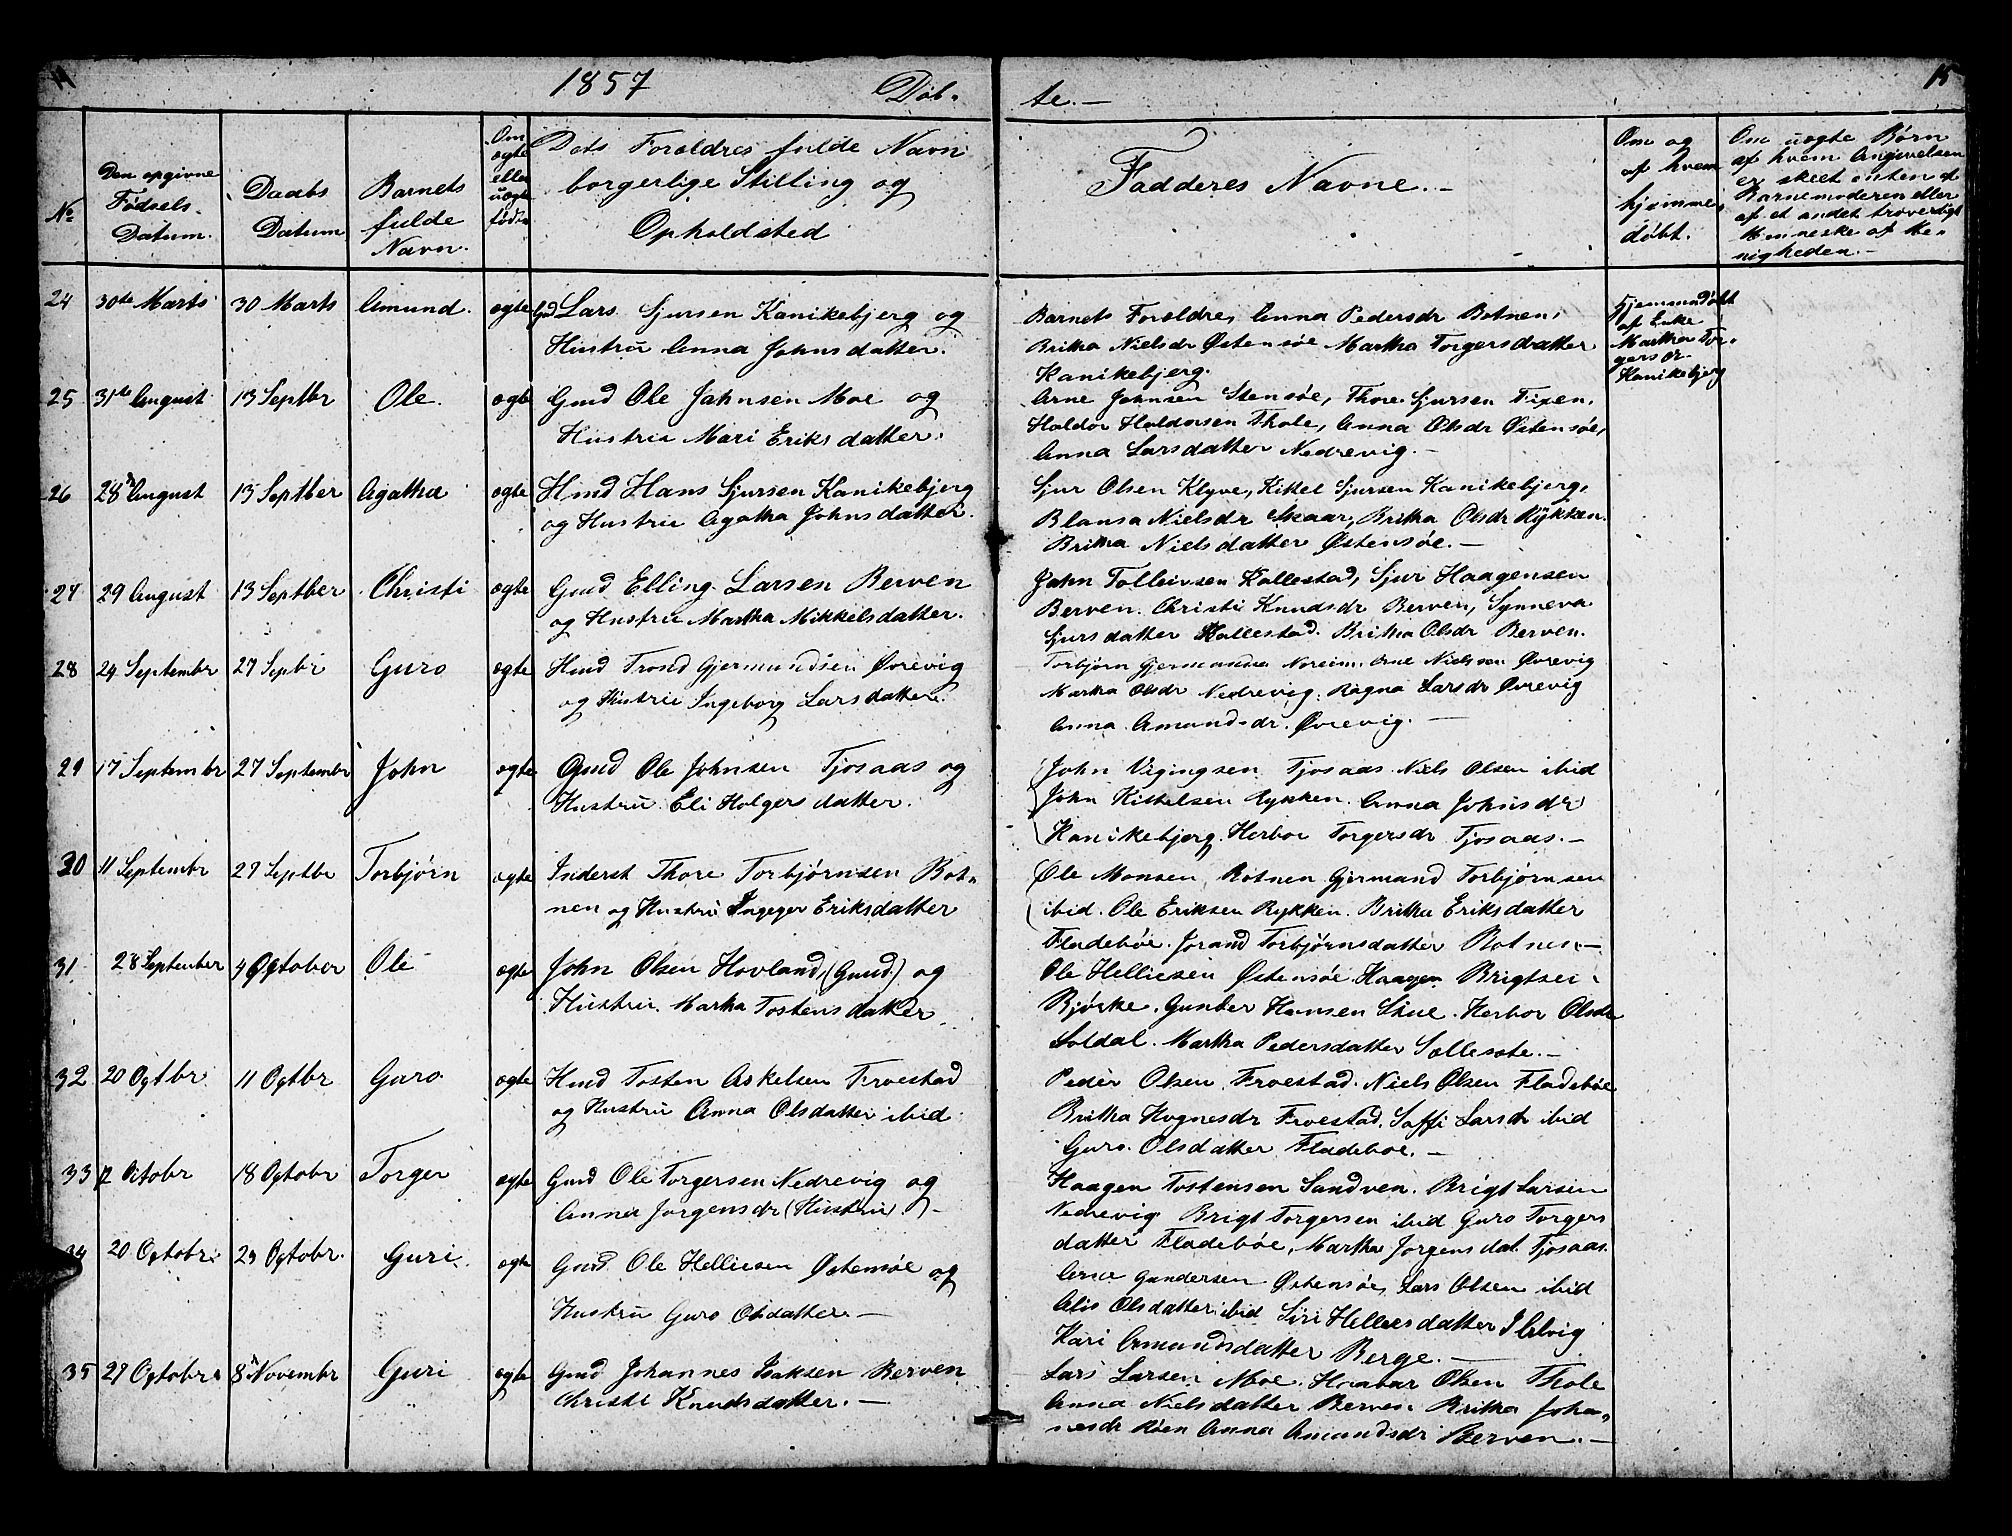 14
1857
Døb-
te.-
15
No
Den opgivne
Fødsels-
Datum.
Daabs
Datum
Barnets
fulde
Navn.
Om
ægte
eller
uægte
født
Dets Forældres fulde Navn
borgerlige Stilling og
Opholdsted
Fadderes Navne.-
Om og
af hvem
hjemme-
døbt.
Om uægte Børn
af hvem Angivelsen
er skeet enten af
Barnemoderen eller
af et andet troværdigt
Menneske af Me-
nigheden.-
24 30te Marts 30 Marts Amund. ægte Gmd Lars Sjursen Kanikebjerg og
Hustru Anna Johnsdatter.
Barnets Forældre, Anna Pedersdr Botnen,
Britha Nielsdr Østensøe Martha Torgersdatter
Kanikebjerg.
Hjemmedøbt
af Enke
Martha Tor-
gersdr
Kanikebjerg
25 31te August 13 Septbr Ole. ægte Gmd Ole Jahnsen Moe og
Hustru Mari Eriksdatter.
Arne Johnsen Stensøe, Thore Sjursen Fixen,
Haldor Haldorsen Thole, Anna Olsdr Østensøe,
Anna Larsdatter Nedrevig.-
26 28 August 13 Septber Agatha ægte Hmd Hans Sjursen Kanikebjerg
og Hustru Agatha Johnsdatter.
Sjur Olsen Klyve, Kittel Sjursen Kanikebjerg,
Blansa Nielsdr Skaar, Britha Olsdr Rykken.
Britha Nielsdatter Østensøe.-
27 29 August 13 Septber Christi ægte Gmd Elling Larsen Berven
og Hustru Martha Mikkelsdatter.
John Tolleivsen Kallestad, Sjur Haagensen
Berven. Christi Knudsdr Berven, Synneva
Sjursdatter Kallestad. Britha Olsdr Berven.
28 24 Septembr 27 Septbr Guro ægte Hmd Trond Gjermundsen Øvrevig
og Hustru Ingeborg Larsdatter.
Torbjørn Gjermundsen Noreim. Arne Nielsen Øvrevig
Martha Olsdr Nedrevig. Ragna Larsdr Øvrevig
Anna Amundsdr. Øvrevig.-
29 17 Septembr 27 Septembr John ægte Gmd Ole Johnsen Tjosaas og
Hustru Eli Holgersdatter.
John Vigingsen Tjosaas. Niels Olsen ibid
John Kittelsen Rykken. Anna Johnsdr
Kanikebjerg. Herbor Torgersdr Tjosaas.-
30 11 Septembr 27 Septbr Torbjørn ægte Inderst Thore Torbjørnsen Bot-
nen og Hustru Ingeger Eriksdatter
Ole Monsen Botnen Gjermund Torbjørnsen
ibid. Ole Eriksen Rykken. Britha Eriksdatter
Fladebøe. Jorand Torbjørnsdatter Botnen.-
31 28 September 4 Ogtober Ole ægte John Olsen Hovland, (Gmd.) og
Hustru Martha Tostensdatter
Ole Helliesen Østensøe. Haagen Brigtsen
Bjørke. Gunder Hansen Skue. Herbor Olsdr
Soldal. Martha Pedersdatter Sollesote.-
32 20 Ogtbr 11 Ogtbr Guro ægte Hmd Tosten Askelsen Froestad
og Hustru Anna Olsdatter ibid
Peder Olsen Froestad. Niels Olsen Fladebøe
Britha Hognesdr Froestad. Saffi Larsdr ibid
Guro Olsdatter Fladeboe.-
33 12 Octobr 18 Ogtobr Torger ægte Gmd Ole Torgersen Nedrevig og
Anna Jorgensdr (Hustru)-
Haagen Tostensen Sandven. Brigt Larsen
Nedrevig Brigt Torgersen ibid Guro Torgers
datter Fladebøe, Martha Jorgensdat. Tjosaas.
34 20 Ogtobr 25 Ogtobr. Guri. ægte Gmd. Ole Helliesen Østensøe og
Hustru Guro Olsdatter.-
Arne Gundersen Østensøe, Lars Olsen ibid
Alis Olsdatter ibid Siri Helliesdatter
Kari Amundsdatter Berge.-
35 27 Ogtobr 8 Novembr Guri ægte Gmd Johannes Isaksen Berven
Christi Knudsdatter.-
Lars Larsen Moe. Haavar Olsen Thole
Anna Nielsdatter Berven. Britha Joha-
nesdr Røen Anna Amundsdr Berven.-